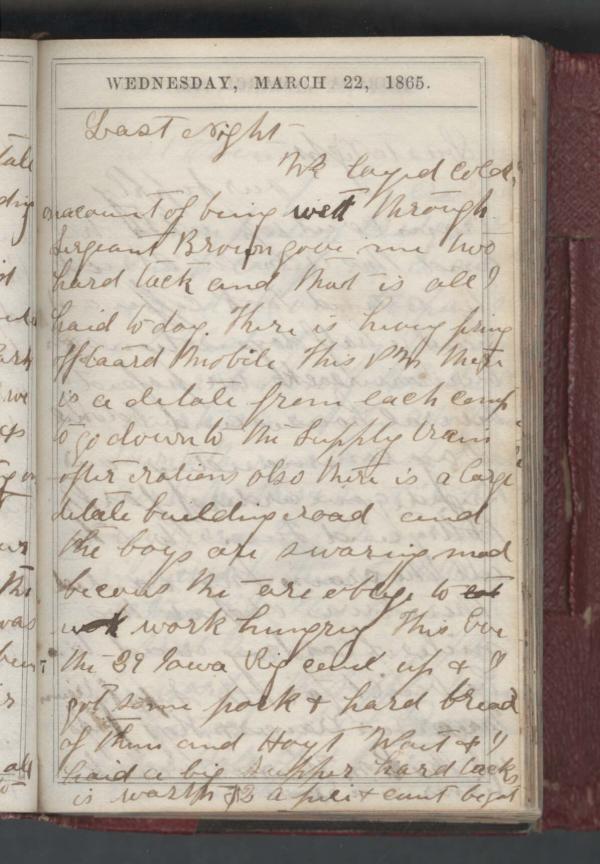 WEDNESDAY, MARCH 22, 1865.
Last night
We layed cold,
on acount of being wett through
Sergeant Brown gave me two
hard tack and that is all I
haid to day. There is hevey firing
off taard Mobile This P.M. there
is a detale from each comp
to go down to the Supply train
after rations also there is a large
detale building road and
the boys are swaring mad
becaus the are oblige to
work hungry This Eve
the 29 Iowa Rig came up & I
got some pork & hard bread
of them and Hoyt Wait & I
haid a big supper hard tacks
is warth $2 a pece & cant be got